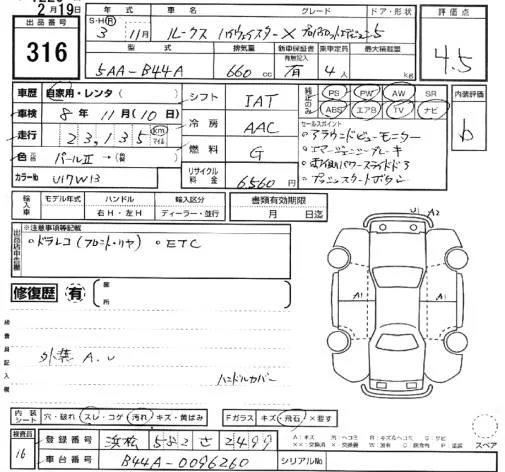 2月19日
出品番号
316
年式 車名 グレード ドア・形状
S・H・R 3 11月 ルークス ハイウェイスターX プロパイロットエディション 5
評価点
4.5
型式 排気量 新車保証書 乗車定員 最大積載量
有無記入
5AA-B44A 660 cc 有 4人 kg
車歴 自家用・レンタ
車検 8年11月(10日)
走行 23,135 km マイル
色 パールⅡ→
カラーNo UI7W13
シフト IAT
冷房 AAC
燃料 G
リサイクル料金 6560円
PS PW AW SR
ABS エアB TV ナビ
内装評価
b
セールスポイント
・アラウンドビューモニター
・エマージェンシーブレーキ
・両側パワースライドドア
・プッシュスタートボタン
輸入車 モデル年式 ハンドル 輸入区分
年 右H・左H ディーラー・並行
書類有効期限
月 日迄
※注意事項等記載
・ドラレコ(フロント・リヤ) ・ETC
修復歴 有
箇所
検査員記入欄
外装 A.U
ハンドルカバー
U A2
A1 A1
内装シート 穴・破れ スレ・コゲ 汚れ キズ・黄ばみ
Fガラス キズ・飛石
スペア
検査員
16
登録番号 浜松 582 さ 2499
車台番号 B44A-0096260
シリアルNo